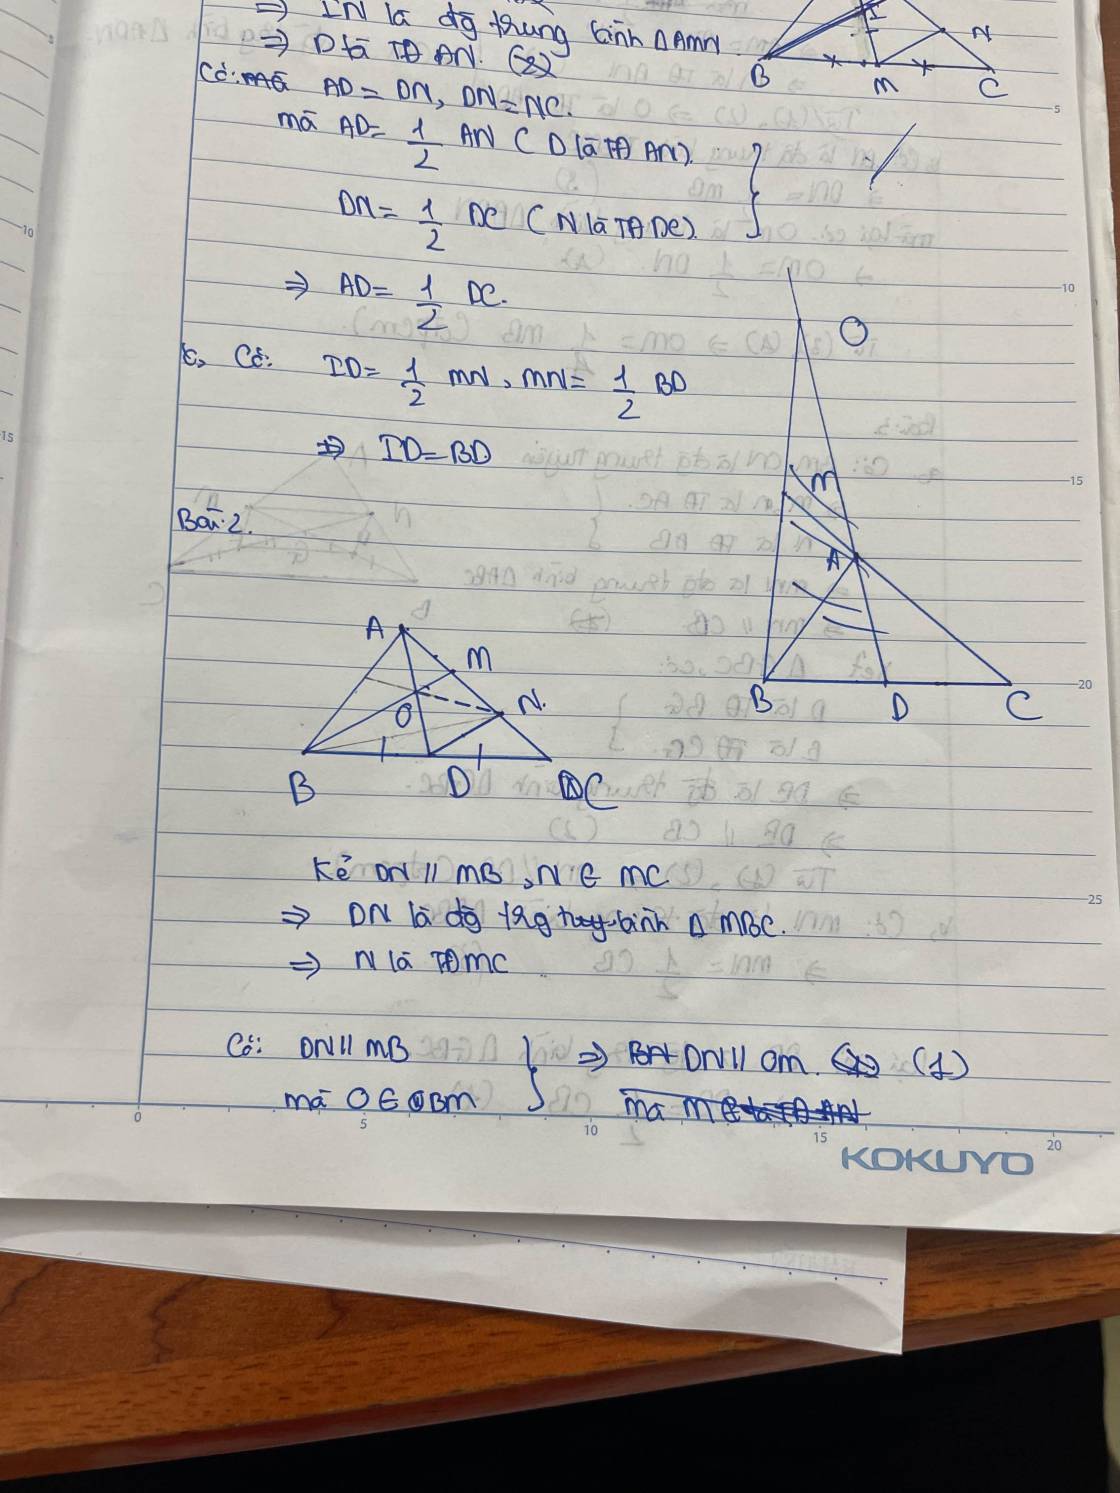 ⇒ IN là đg trung bình ΔAMN
⇒ D là TĐ AN. (2)
Có: AD = DN, DN = NC.
mà AD = 1/2 AN (D là TĐ AN).
DN = 1/2 DC (N là TĐ DC)
⇒ AD = 1/2 DC.
c, Có: ID = 1/2 MN, MN = 1/2 BD
⇒ ID = BD
Bài 2.
B M C N
O
M
A
B D C
A
M
O N
B D C
Kẻ DN // MB, N ∈ MC.
⇒ DN là đg trg bình Δ MBC.
⇒ N là TĐ MC
Có: DN // MB } ⇒ DN // OM. (1)
mà O ∈ BM
KOKUYO
0 5 10 15 20
5
10
15
20
25
10
15